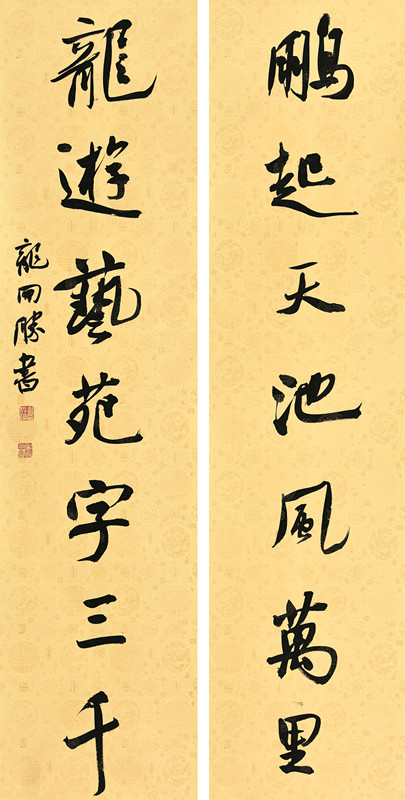 鵬起天池風萬里
龍遊藝苑字三千
龍回勝書